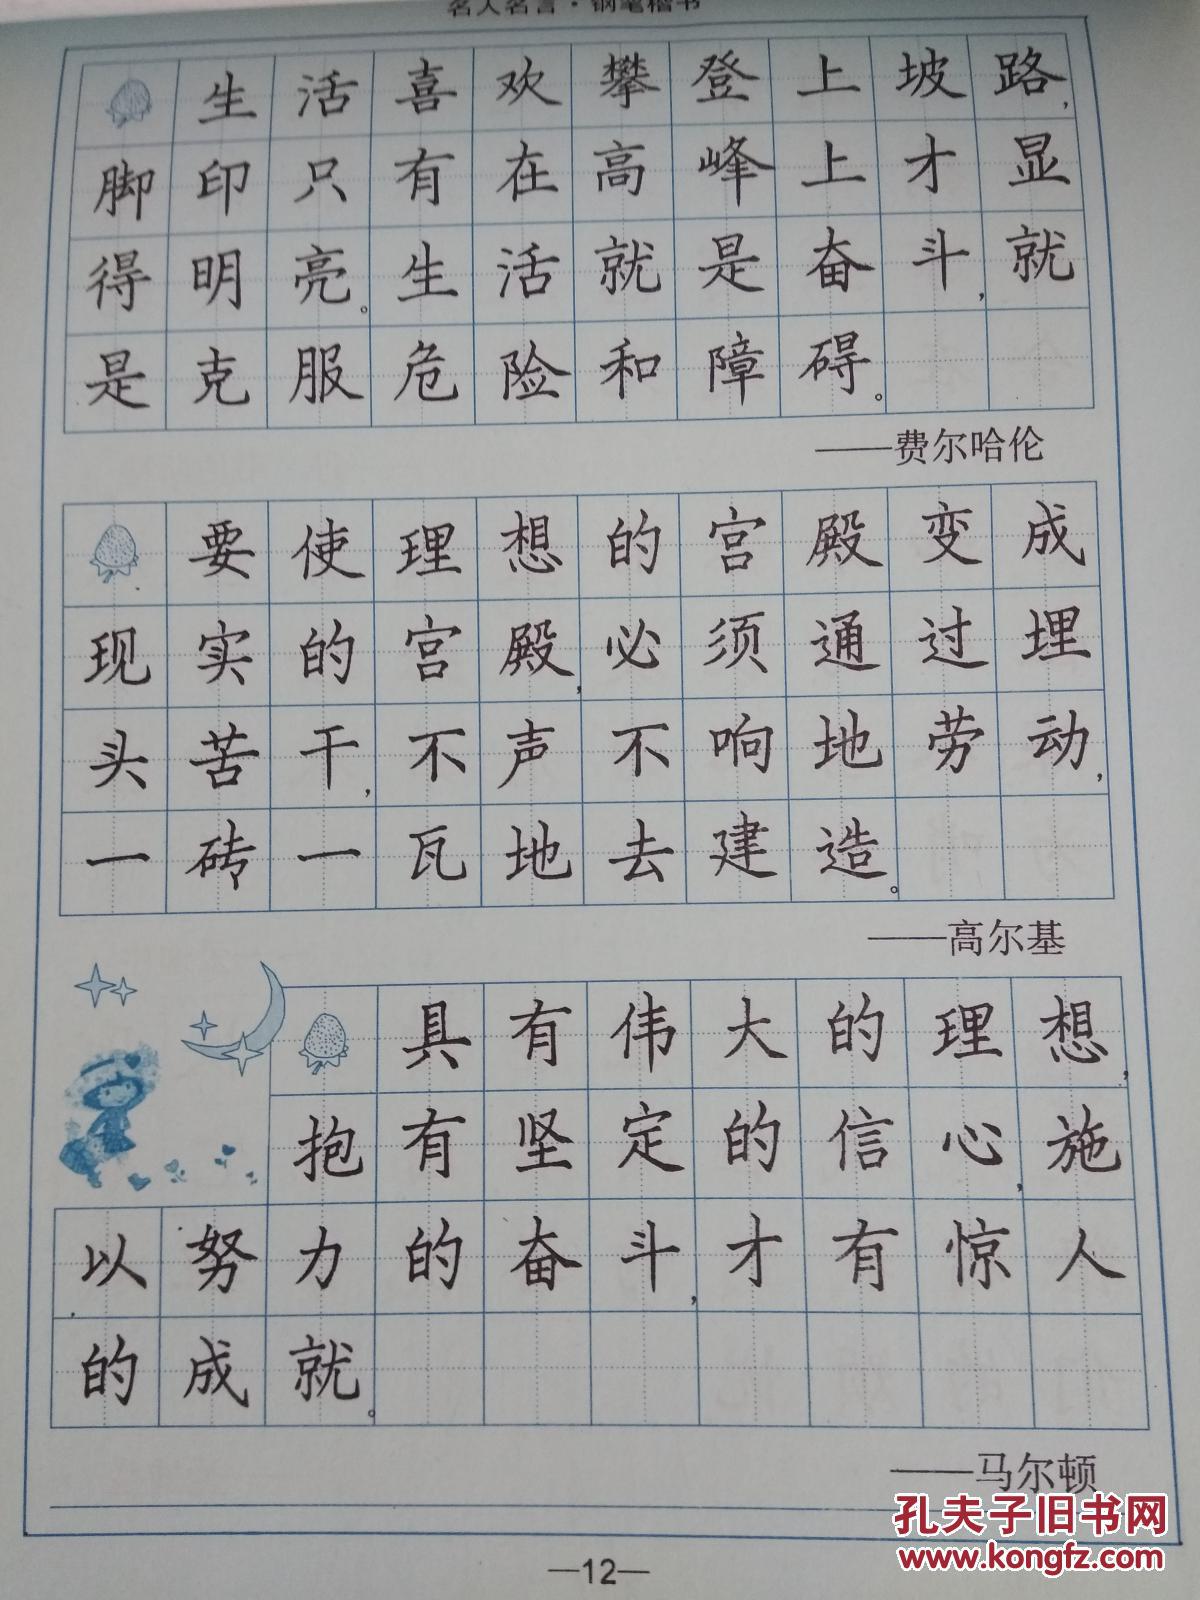 名人名言·钢笔楷书
生活喜欢攀登上坡路,
脚印只有在高峰上才显
得明亮。生活就是奋斗,就
是克服危险和障碍。
——费尔哈伦
要使理想的宫殿变成
现实的宫殿,必须通过埋
头苦干,不声不响地劳动,
一砖一瓦地去建造。
——高尔基
具有伟大的理想,
抱有坚定的信心,施
以努力的奋斗,才有惊人
的成就。
——马尔顿
孔夫子旧书网
www.kongfz.com
—12—